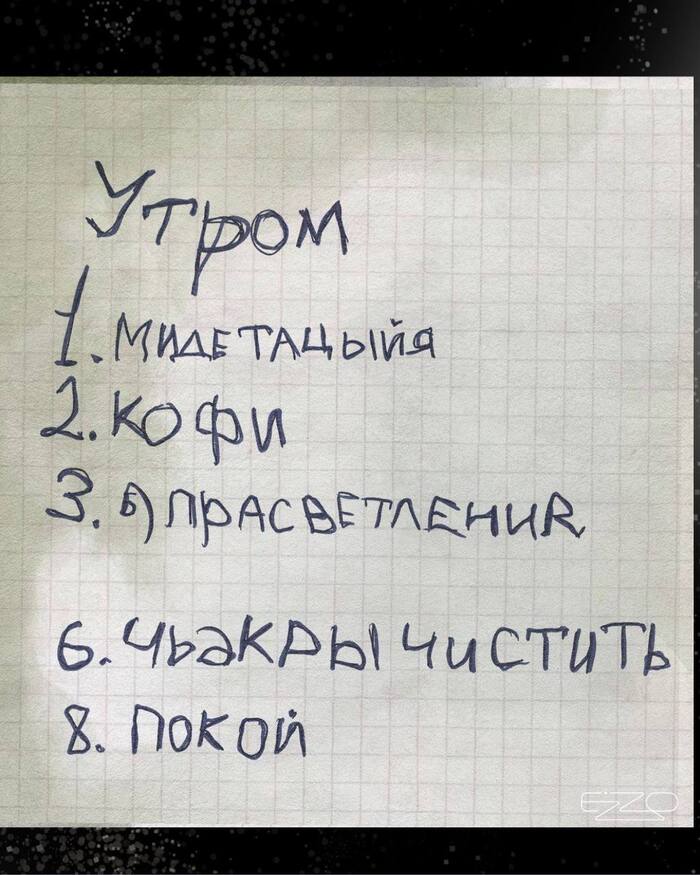 Утром
1. МИДЕТАЦЫЙЯ
2. КОФИ
3. Б) ПРАСВЕТЛЕНИЯ
6. ЧЬАКРЫ ЧИСТИТЬ
8. ПОКОЙ
EZZO